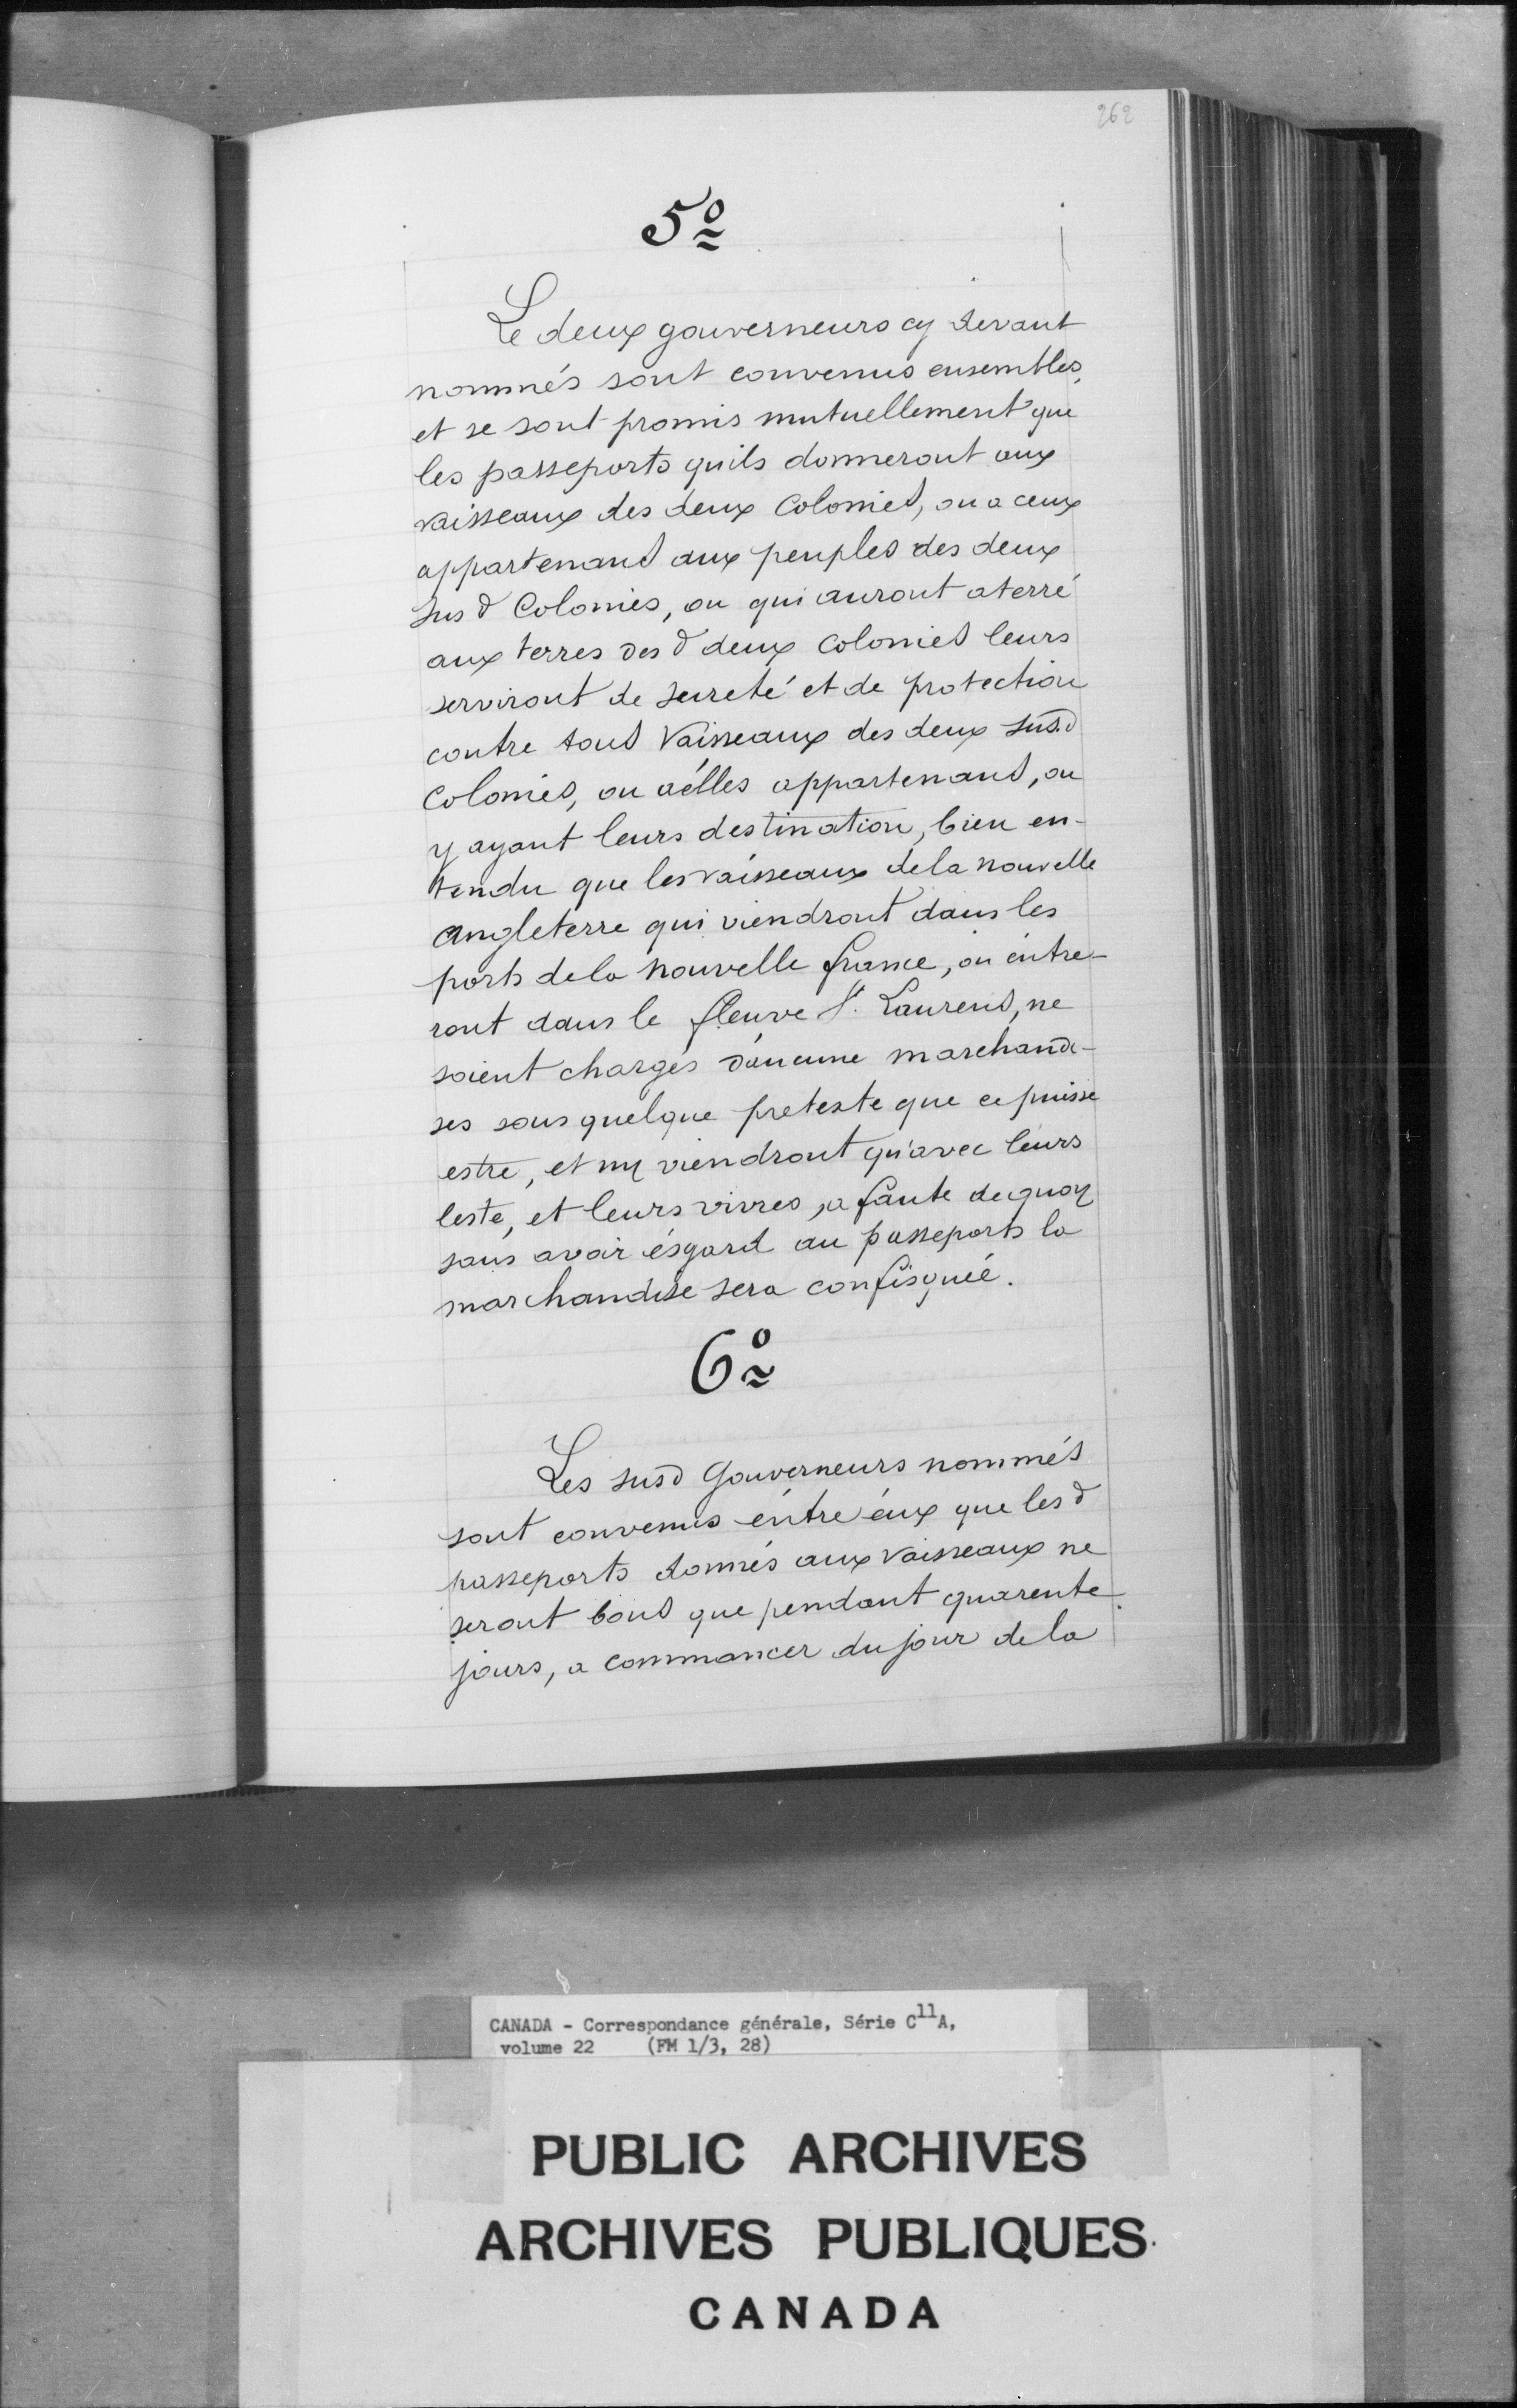 262
5º
Le deux gouverneurs cy devant
nommés sont convenus ensembles,
et se sont promis mutuellement que
les passeports quils donneront aux
vaisseaux des deux Colonies, ou a ceux
appartenans aux peuples des deux
sus d Colonies, ou qui auront aterré
aux terres des d deux colonies leurs
serviront de seureté et de protection
contre tous Vaisseaux des deux susd
Colonies, ou aélles appartenans, ou
y ayant leurs destination, bien en-
tendu que les vaisseaux dela nouvelle
angleterre qui viendront dans les
ports dela nouvelle france, ou éntre-
ront dans le fleuve St. Laurens, ne
soient chargés daucune marchandi-
ses sous quelque pretexte que ce puisse
estre, et ny viendront qu'avec leurs
leste, et leurs vivres, a faute dequoy
sans avoir ésgard au passeports la
marchandise sera confisquée.
6º
Les susd Gouverneurs nommés
sont convenus éntre éux que les d
passeports donnés aux vaisseaux ne
seront bons que pendant quarente
jours, a commancer du jour dela
CANADA - Correspondance générale, Série C11A,
volume 22 (FM 1/3, 28)
PUBLIC ARCHIVES
ARCHIVES PUBLIQUES
CANADA